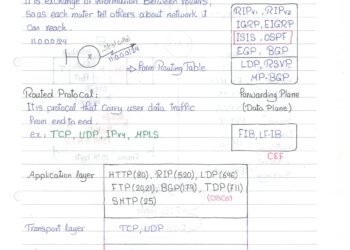 It is exchange of information Between routers,
So as each router tell others about network it
can reach.
11.0.0.0/24
X
11.0.0.0/24
→ Form Routing Table
RIPv1, RIPv2
IGRP, EIGRP
ISIS, OSPF
EGP, BGP
LDP, RSVP
MP-BGP
Routed Protocol:
It is protocol that carry user data traffic
from end to end.
ex: TCP, UDP, IPv4, MPLS
Forwarding Plane
(Data Plane)
FIB, LFIB
CEF
Application layer
HTTP(80), RIP(520), LDP(646)
FTP(20,21), BGP(179), TDP(711)
SMTP(25)
(CISCO)
Transport layer
TCP, UDP